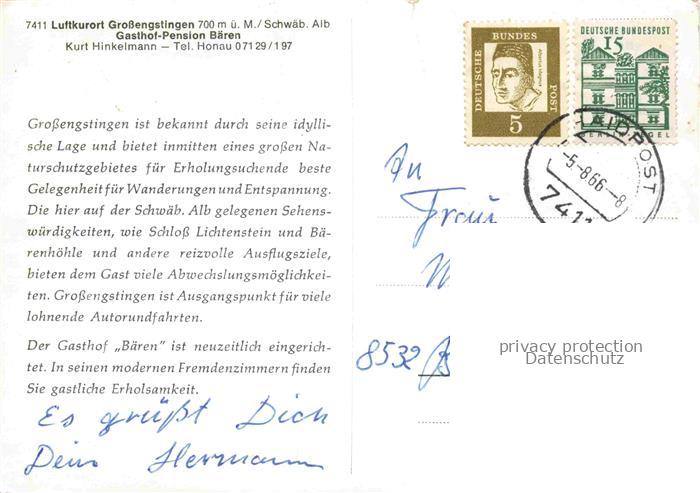 7411 Luftkurort Großengstingen 700 m ü. M./Schwäb. Alb
Gasthof-Pension Bären
Kurt Hinkelmann — Tel. Honau 07129/197
Großengstingen ist bekannt durch seine idylli-
sche Lage und bietet inmitten eines großen Na-
turschutzgebietes für Erholungsuchende beste
Gelegenheit für Wanderungen und Entspannung.
Die hier auf der Schwäb. Alb gelegenen Sehens-
würdigkeiten, wie Schloß Lichtenstein und Bä-
renhöhle und andere reizvolle Ausflugsziele,
bieten dem Gast viele Abwechslungsmöglichkei-
ten. Großengstingen ist Ausgangspunkt für viele
lohnende Autorundfahrten.
Der Gasthof „Bären" ist neuzeitlich eingerich-
tet. In seinen modernen Fremdenzimmern finden
Sie gastliche Erholsamkeit.
Es grüßt Dich
Dein Hermann
DEUTSCHE BUNDESPOST
5
DEUTSCHE BUNDESPOST
15
-5.-8.66.-8
741
An
Frau
8532
privacy protection
Datenschutz